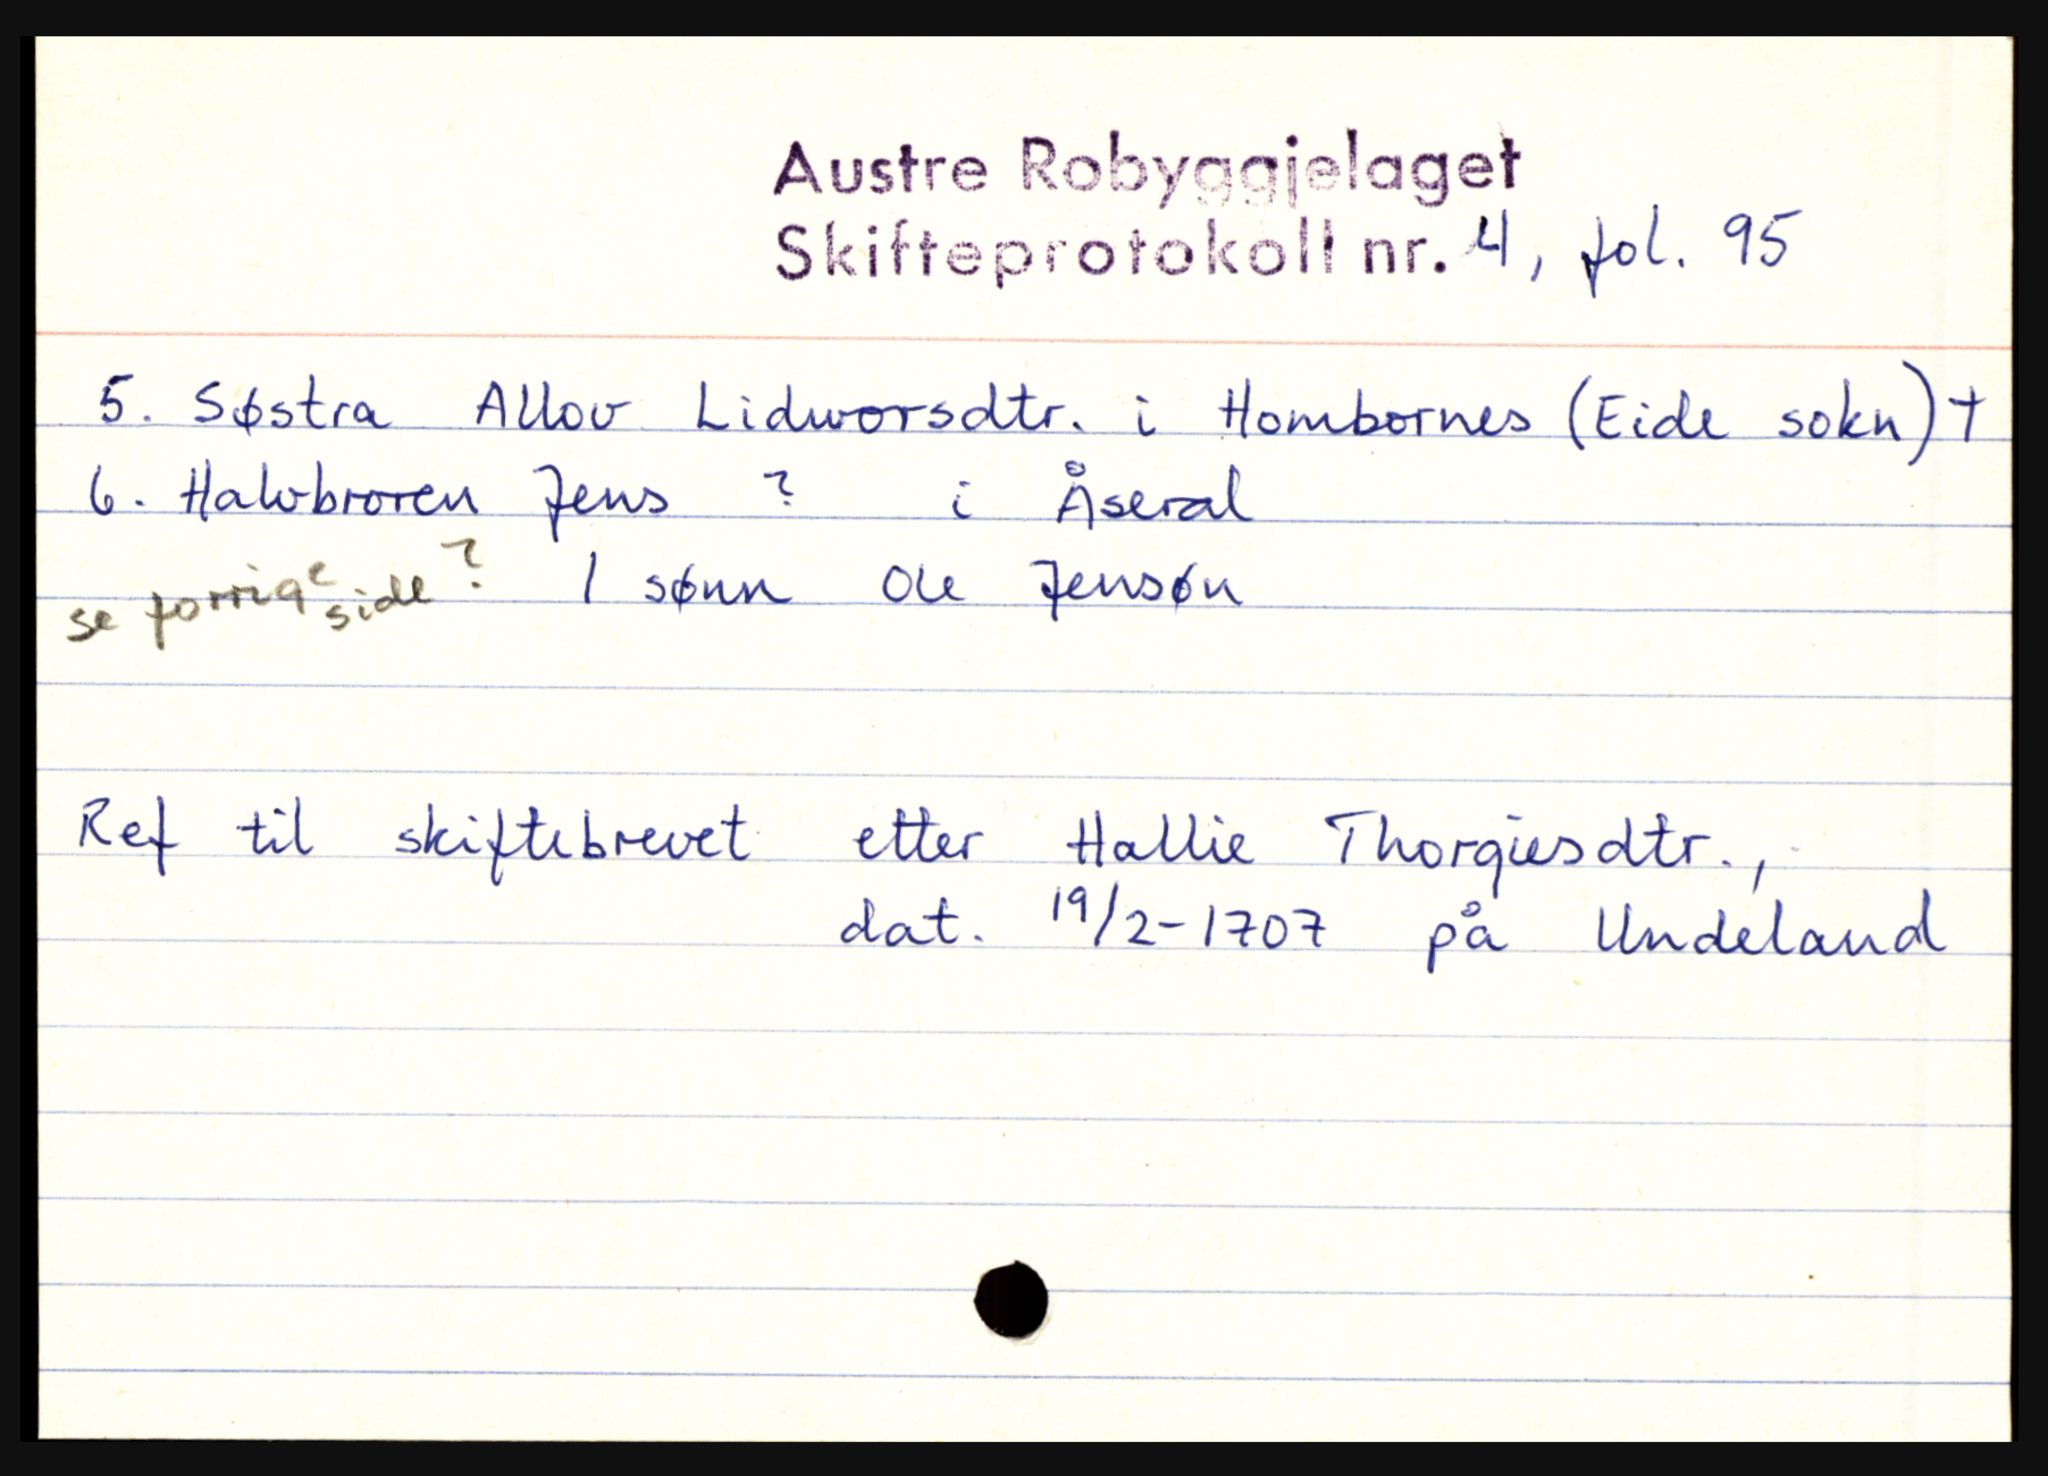 Austre Robyggjelaget
Skifteprotokoll nr. 4, fol. 95
5. Søstra Allov Lidworsdtr. i Hombornes (Eide sokn) †
6. Halvbroren Jens ? i Åseral
se forrige side? 1 sønn Ole Jensøn
Ref til skiftebrevet etter Hallie Thorgiesdtr.,
dat. 19/2-1707 på Undeland